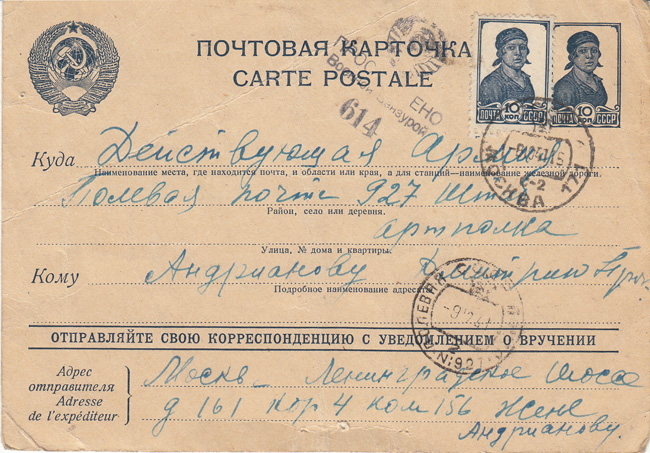 ПОЧТОВАЯ КАРТОЧКА
CARTE POSTALE
ПРОС ЕНО
Военной Цензурой
614
10 КОП
ПОЧТА СССР
10 КОП
ПОЧТА СССР
МОСКВА
Куда Действующая Армия
Наименование места, где находится почта, и области или края, а для станций—наименование железной дороги.
Полевая почта 927 Шт
Район, село или деревня.
артполка
Улица, № дома и квартиры.
Кому Андрианову Дмитрию
Подробное наименование адресата
ПОЛЕВАЯ
927
ОТПРАВЛЯЙТЕ СВОЮ КОРРЕСПОНДЕНЦИЮ С УВЕДОМЛЕНИЕМ О ВРУЧЕНИИ
Адрес отправителя
Adresse de l'expéditeur
Москва Ленинградское Шоссе
д 161 кор 4 ком 156 Жене
Андрианову.